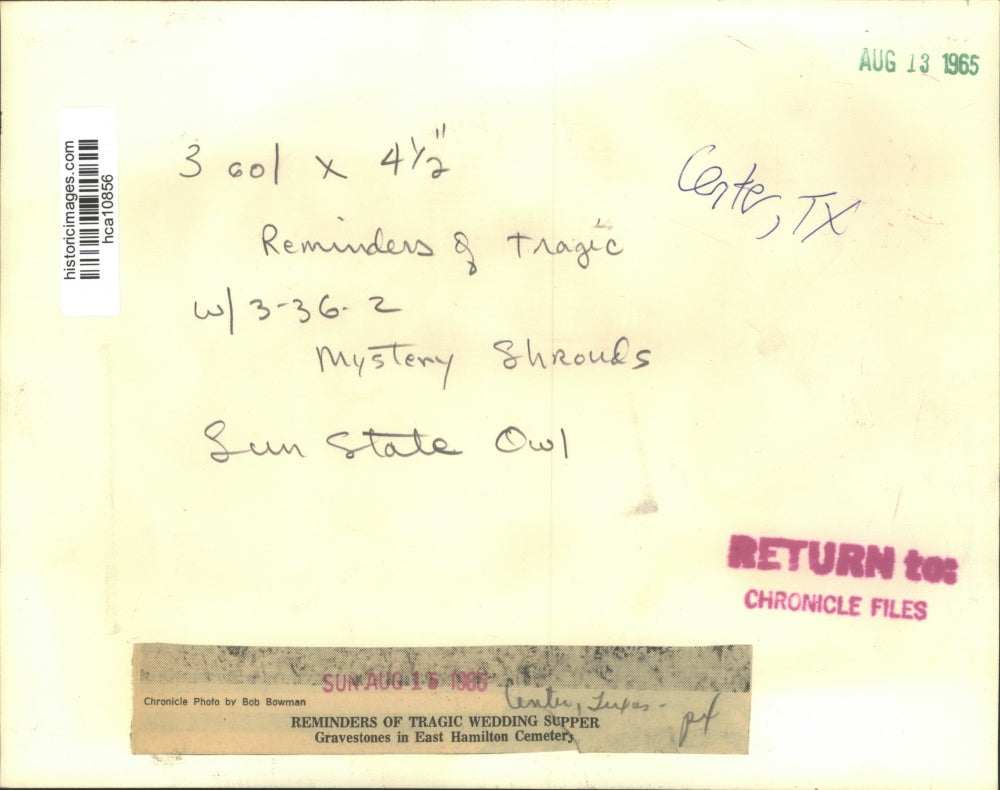 AUG 13 1965
historicimages.com
hca10856
3 col x 4½"
Center, TX
Reminders of Tragic
w/ 3-36-2
Mystery Shrouds
Sun State Owl
RETURN to:
CHRONICLE FILES
SUN AUG 15 1965
Chronicle Photo by Bob Bowman
Center, Texas -
REMINDERS OF TRAGIC WEDDING SUPPER
Gravestones in East Hamilton Cemetery